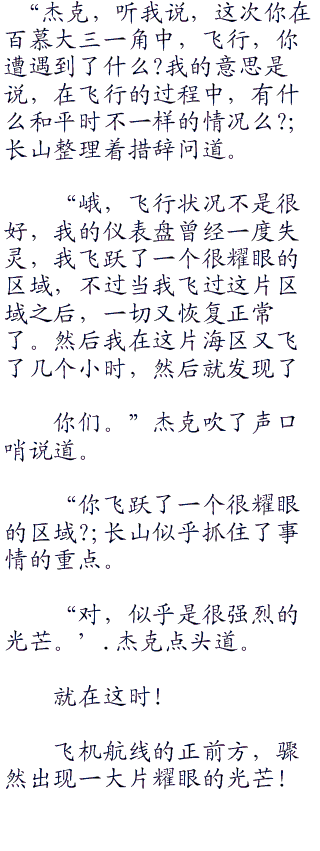 “杰克，听我说，这次你在
百慕大三一角中，飞行，你
遭遇到了什么?我的意思是
说，在飞行的过程中，有什
么和平时不一样的情况么?;
长山整理着措辞问道。
“峨，飞行状况不是很
好，我的仪表盘曾经一度失
灵，我飞跃了一个很耀眼的
区域，不过当我飞过这片区
域之后，一切又恢复正常
了。然后我在这片海区又飞
了几个小时，然后就发现了
你们。”杰克吹了声口
哨说道。
“你飞跃了一个很耀眼
的区域?;长山似乎抓住了事
情的重点。
“对，似乎是很强烈的
光芒。’.杰克点头道。
就在这时!
飞机航线的正前方，骤
然出现一大片耀眼的光芒!